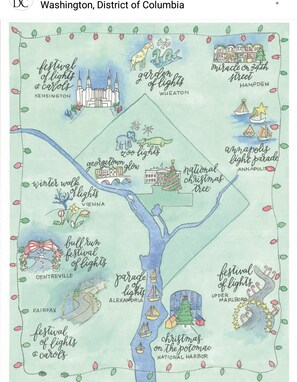 DC
Washington, District of Columbia
festival
of lights
& carols
KENSINGTON
garden
of lights
WHEATON
miracle on 34th
street
HAMPDEN
annapolis
light parade
ANNAPOLIS
zoo lights
georgetown
glow
national
christmas
tree
winter walk
of lights
VIENNA
bull run
festival
of lights
CENTREVILLE
FAIRFAX
festival
of lights
& carols
parade
of
lights
ALEXANDRIA
christmas
on the potomac
NATIONAL HARBOR
festival
of lights
UPPER
MARLBORO